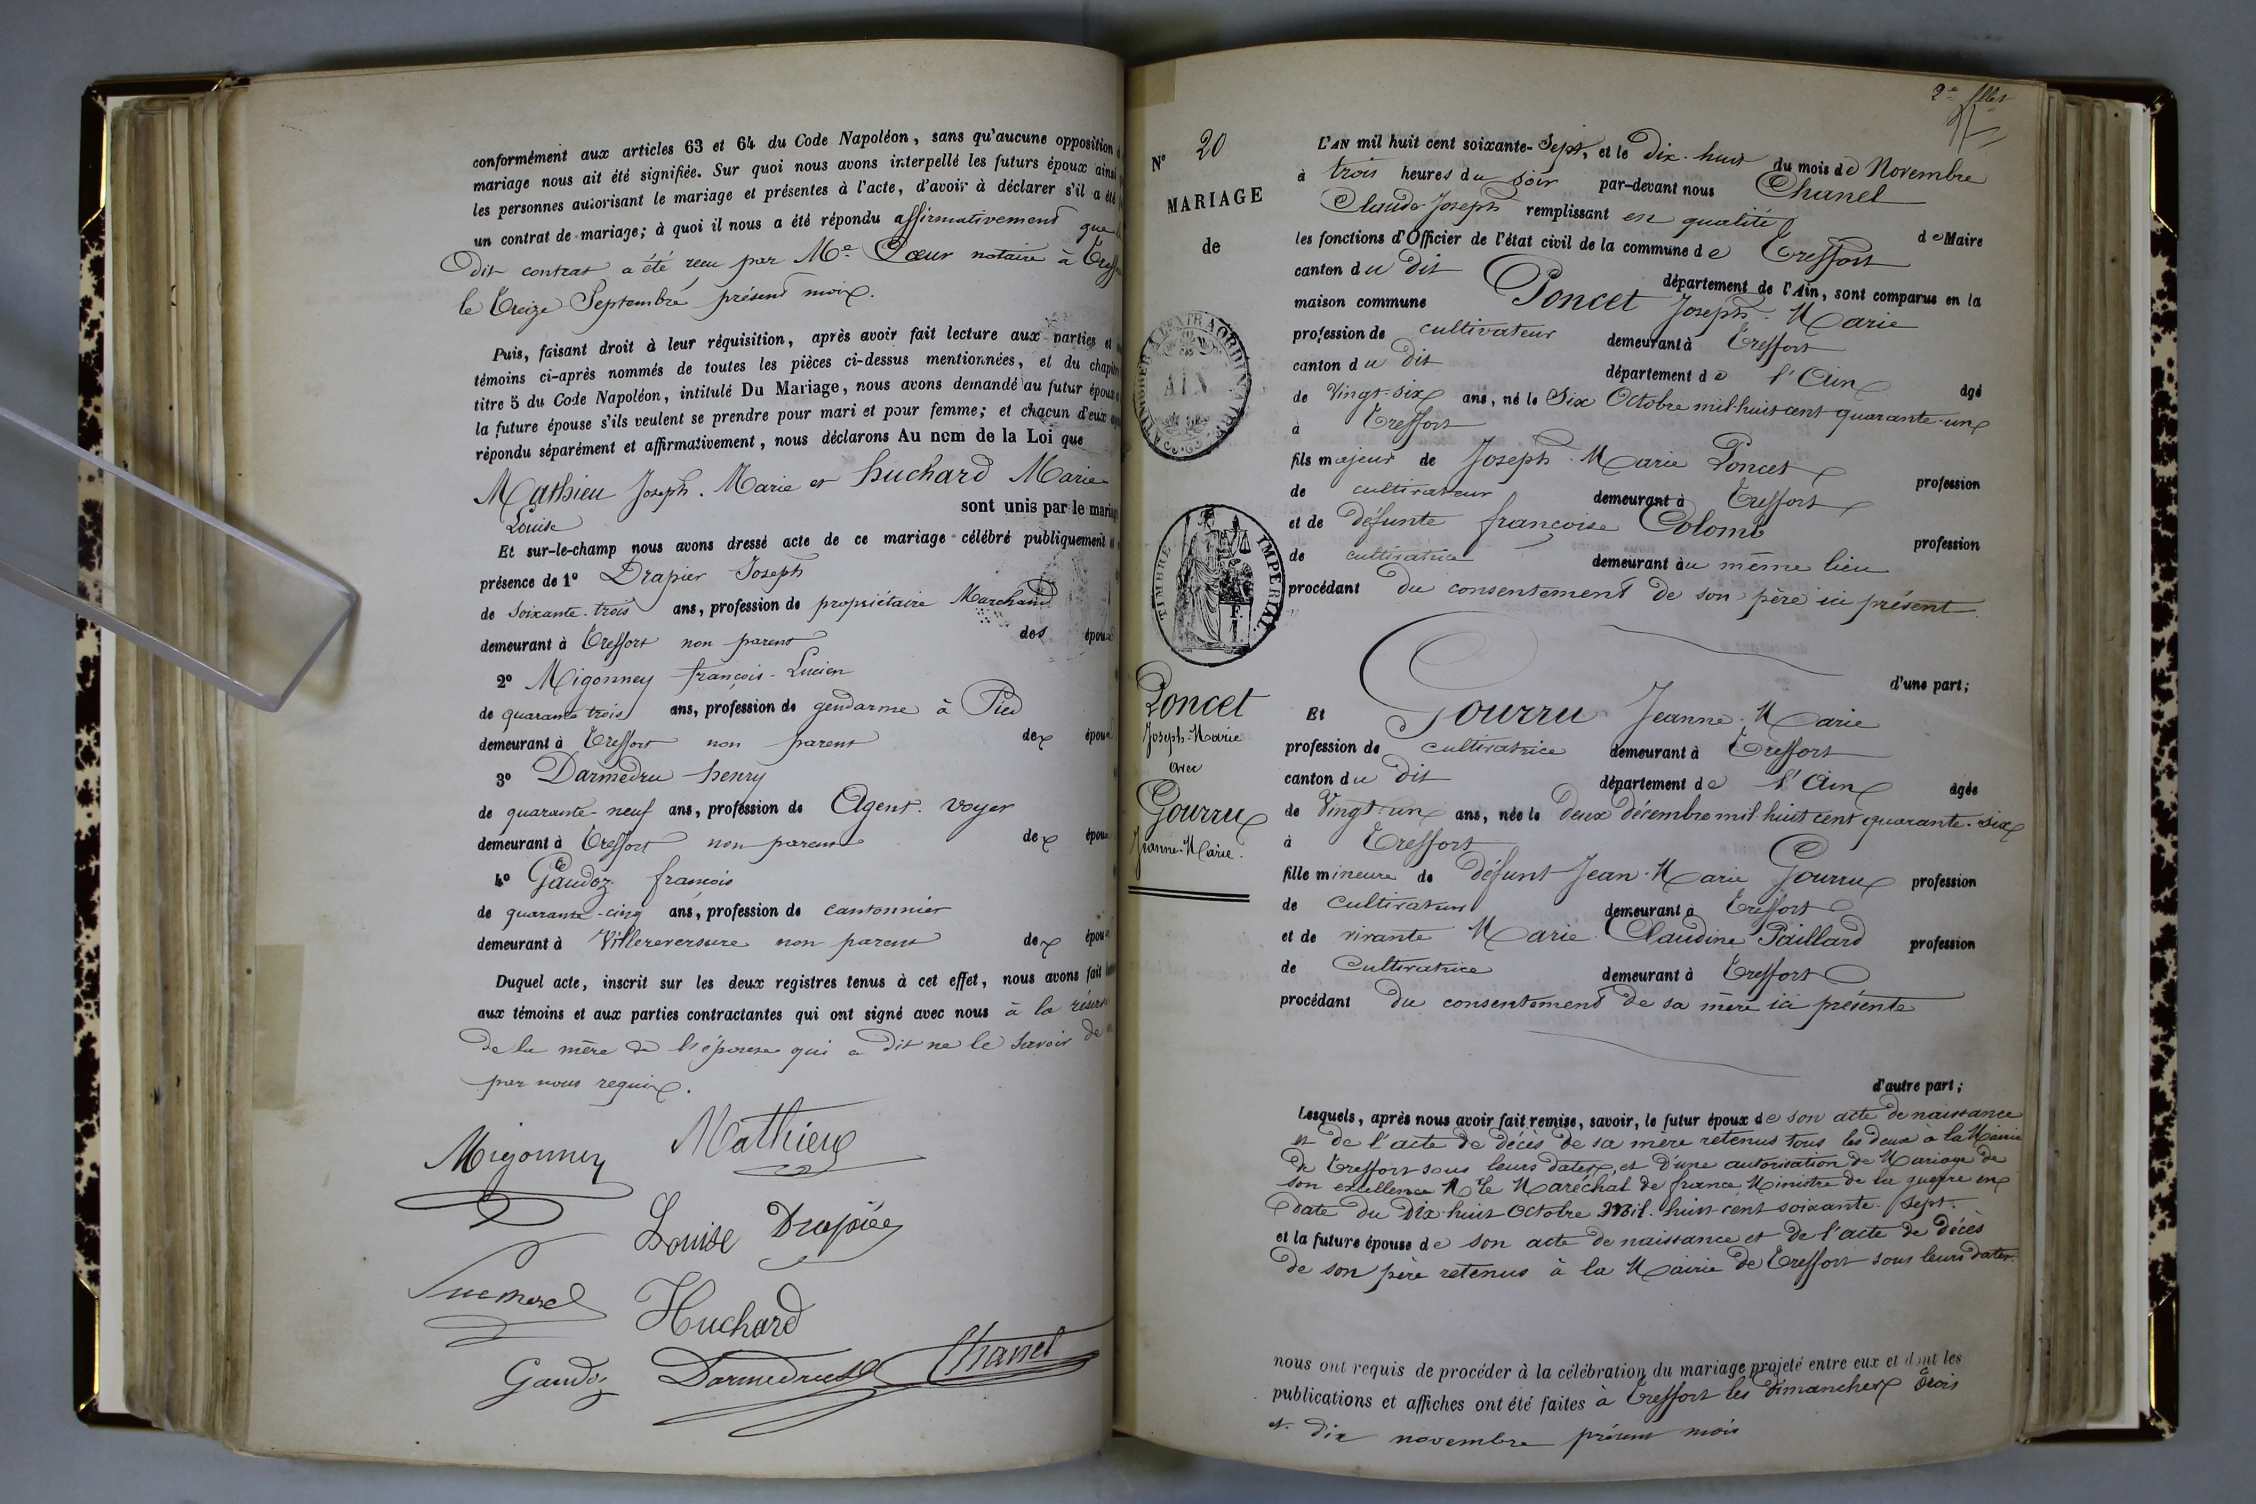 conformément aux articles 63 et 64 du Code Napoléon, sans qu'aucune opposition
mariage nous ait été signifiée. Sur quoi nous avons interpellé les futurs époux ainsi
les personnes autorisant le mariage et présentes à l'acte, d'avoir à déclarer s'il a été
un contrat de mariage; à quoi il nous a été répondu affirmativement que
Dit contrat a été reçu par Me. Cœur notaire à
le Treize Septembre présent mois.
Puis, faisant droit à leur réquisition, après avoir fait lecture aux parties et
témoins ci-après nommés de toutes les pièces ci-dessus mentionnées, et du chapitre
titre 5 du Code Napoléon, intitulé Du Mariage, nous avons demandé au futur époux
la future épouse s'ils veulent se prendre pour mari et pour femme; et chacun d'eux
répondu séparément et affirmativement, nous déclarons Au nom de la Loi que
Mathieu Joseph. Marie et huchard Marie
Louise
sont unis par le mariage
Et sur-le-champ nous avons dressé acte de ce mariage célébré publiquement
présence de 1° Drapier Joseph
de Soixante-trois ans, profession de propriétaire Marchand
demeurant à Treffort non parent des époux
2° Migonney françois-Lucien
de quarante trois ans, profession de gendarme à Pied
demeurant à Treffort non parent de époux
3° Darmedru henry
de quarante-neuf ans, profession de Agent-voyer
demeurant à Treffort non parent de époux
4° Gaudoz françois
de quarante-cinq ans, profession de cantonnier
demeurant à Villereversure non parent de époux
Duquel acte, inscrit sur les deux registres tenus à cet effet, nous avons fait
aux témoins et aux parties contractantes qui ont signé avec nous à la réserve
de la mère de l'épouse qui a dit ne le savoir de
par nous requis.
Migonney Mathieu
Louise Drapier
Huchard
Gaudoz Darmedru Chanel
2e
N° 20
MARIAGE
de
TIMBRE IMPERIAL
AIN
Poncet
Joseph-Marie
avec
Gourru
Jeanne-Marie.
L'AN mil huit cent soixante-Sept, et le Dix-huit du mois de Novembre
à trois heures du soir par-devant nous Chanel
Claude Joseph remplissant en qualité de Maire
les fonctions d'Officier de l'état civil de la commune de Treffort
canton du dit département de l'Ain, sont comparus en la
maison commune Poncet Joseph-Marie
profession de cultivateur demeurant à Treffort
canton du dit département de l'Ain âgé
de Vingt-six ans, né le Six Octobre mil-huit cent quarante-un
à Treffort
fils majeur de Joseph-Marie Poncet profession
de cultivateur demeurant à Treffort
et de défunte françoise Colomb profession
de cultivatrice demeurant au même lieu
procédant du consentement de son père ici présent
d'une part;
Et Gourru Jeanne-Marie
profession de cultivatrice demeurant à Treffort
canton du dit département de l'Ain âgée
de Vingt-un ans, née le deux décembre mil-huit cent quarante-six
à Treffort
fille mineure de défunt Jean-Marie Gourru profession
de Cultivateur demeurant à Treffort
et de vivante Marie Claudine Paillard profession
de Cultivatrice demeurant à Treffort
procédant du consentement de sa mère ici présente
d'autre part;
Lesquels, après nous avoir fait remise, savoir, le futur époux de son acte de naissance
et de l'acte de décès de sa mère retenus tous les deux à la Mairie
de Treffort sous leurs dates, et d'une autorisation de Mariage de
son excellence Mr le Maréchal de france Ministre de la guerre en
date du Dix-huit Octobre Mil-huit cent soixante-sept.
et la future épouse de son acte de naissance et de l'acte de décès
de son père retenus à la Mairie de Treffort sous leurs dates.
nous ont requis de procéder à la célébration du mariage projeté entre eux et dont les
publications et affiches ont été faites à Treffort les dimanches Trois
et dix novembre présent mois